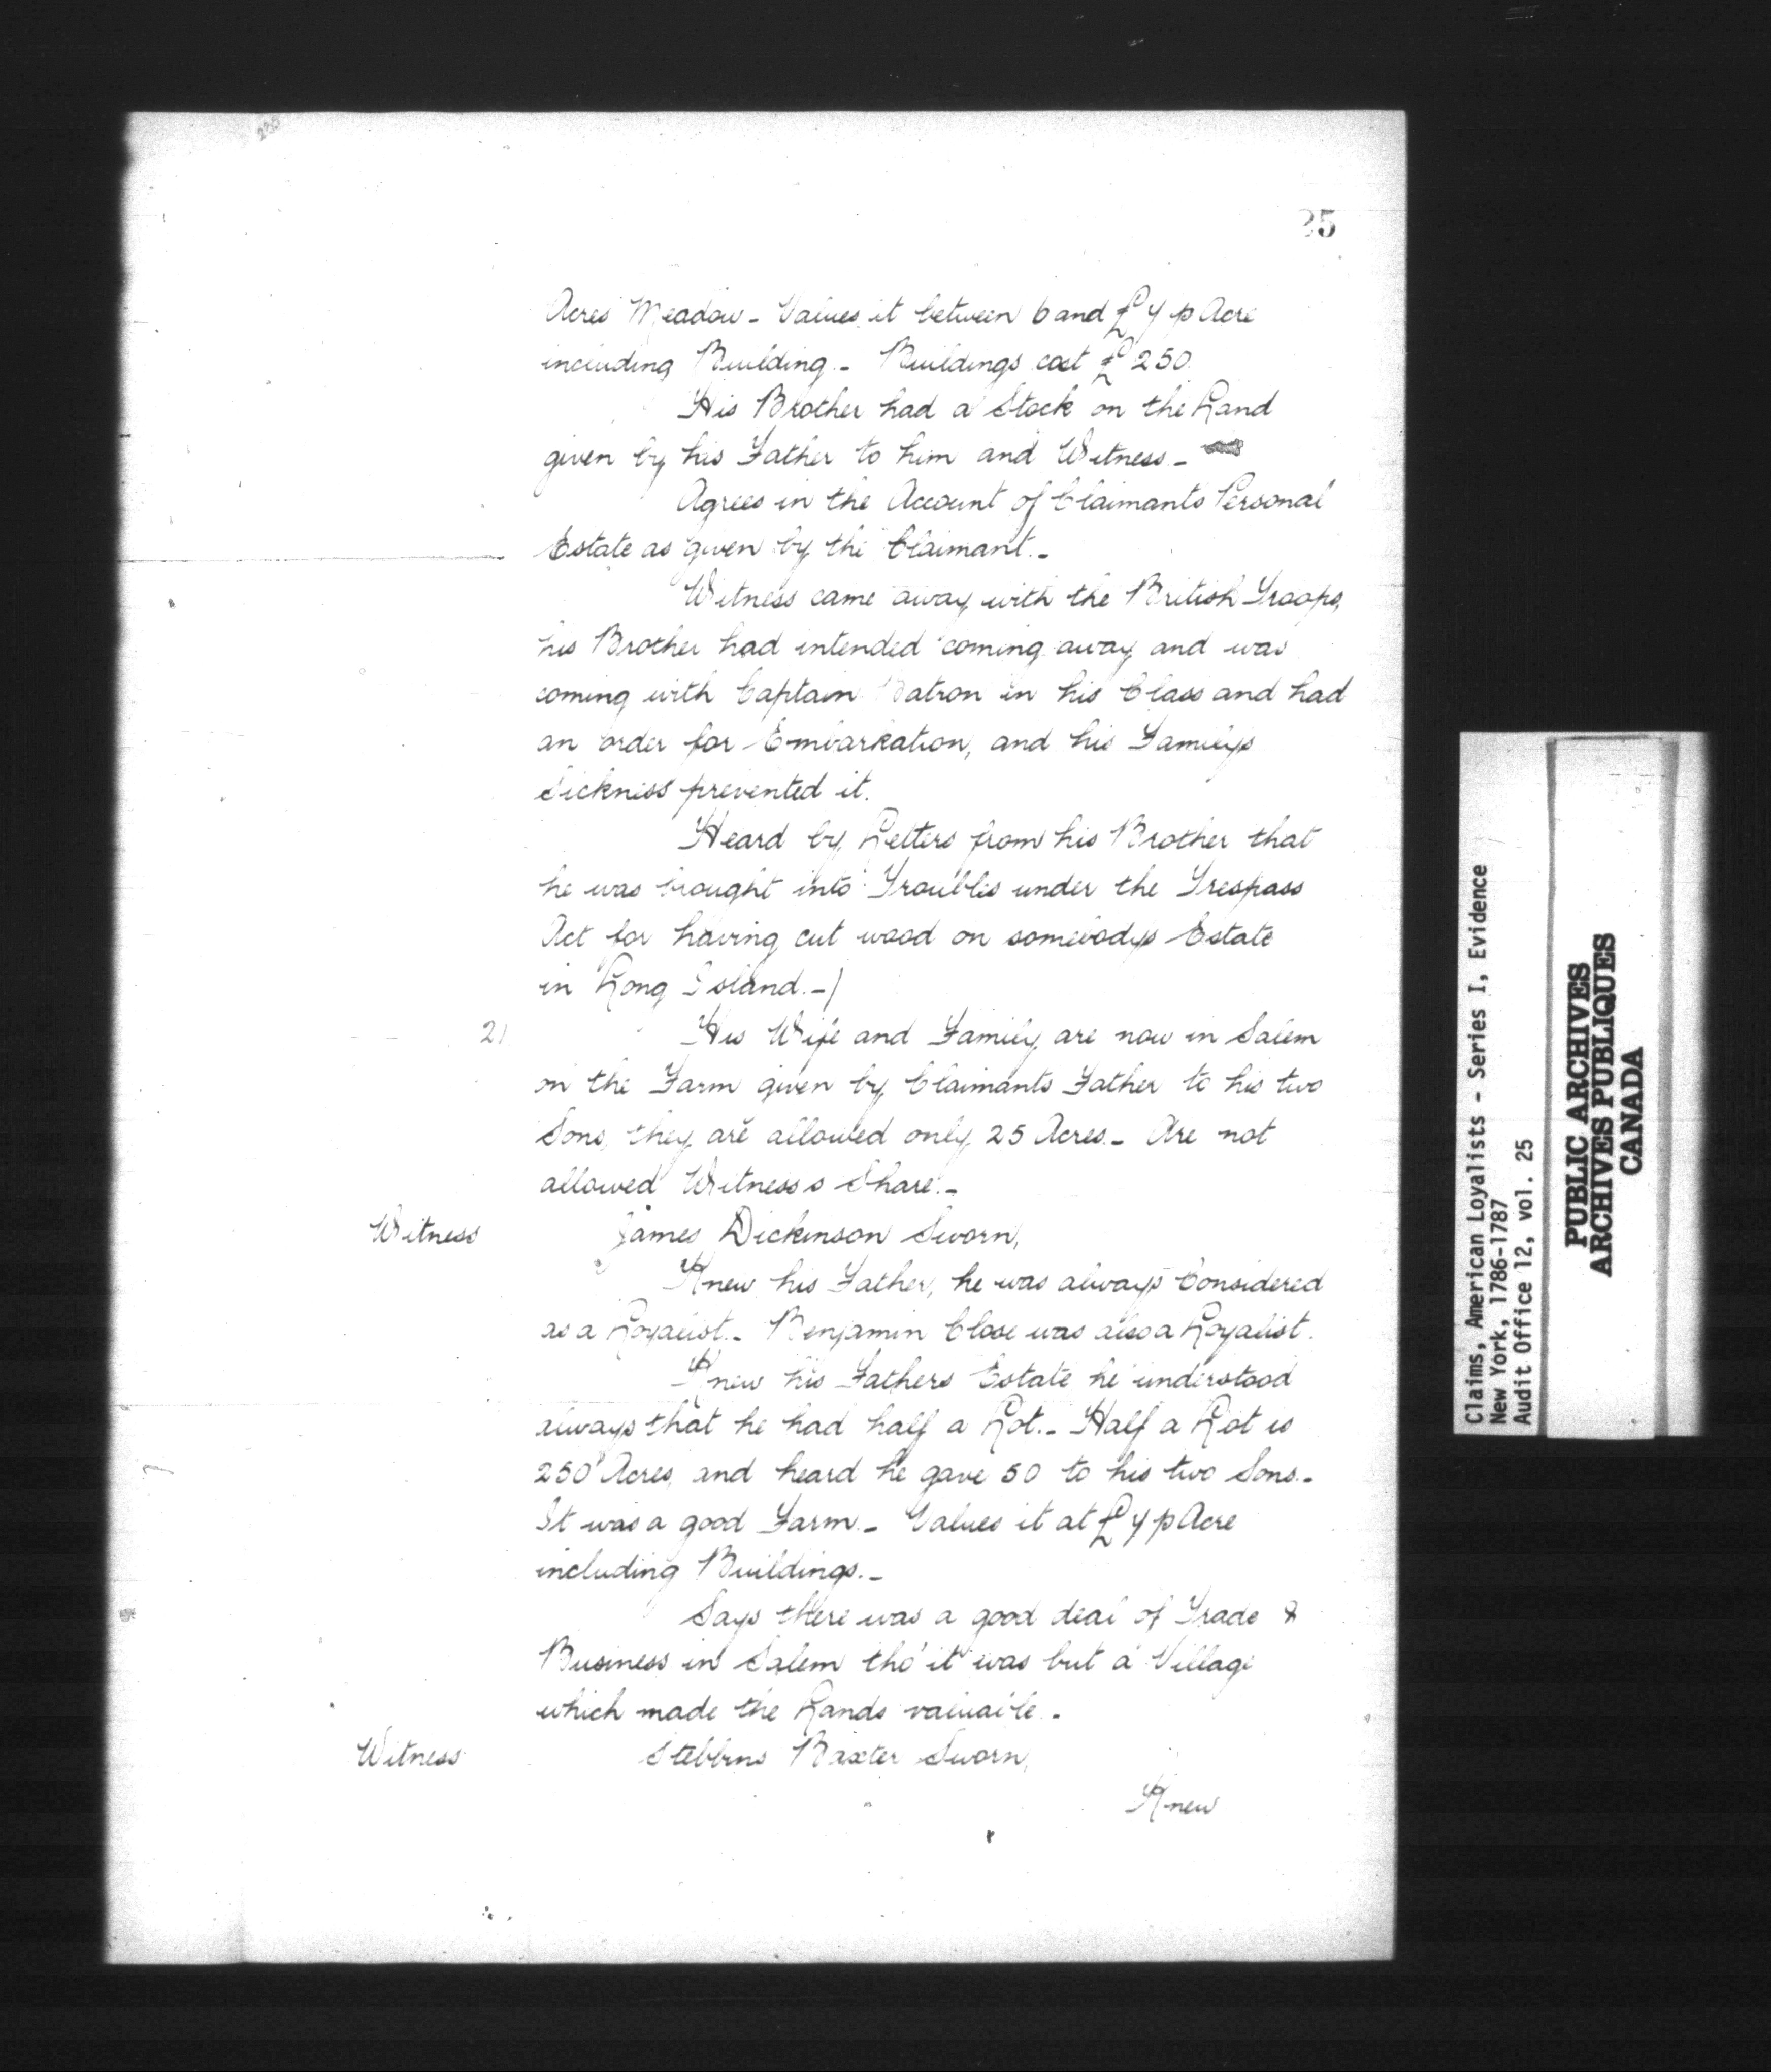 25
Acres Meadow - Values it between 6 and £7 p Acre
including Building - Buildings cost £250.
His Brother had a Stock on the Land
given by his Father to him and Witness -
Agrees in the Account of Claimants Personal
Estate as given by the Claimant. -
Witness came away with the British Troops,
his Brother had intended coming away and was
coming with Captain in his Class and had
an order for Embarkation, and his Familys
Sickness prevented it.
Heard by Letters from his Brother that
he was brought into Troubles under the Trespass
Act for having cut wood on somebodys Estate
in Long Island. -)
2) His Wife and Family are now in Salem
on the Farm given by Claimants Father to his two
Sons, they are allowed only 25 Acres. - Are not
allowed Witness s Share. -
Witness James Dickinson Sworn,
Knew his Father, he was always Considered
as a Loyalist. - Benjamin Close was also a Loyalist.
Knew his Fathers Estate he understood
always that he had half a Lot. - Half a Lot is
250 Acres, and heard he gave 50 to his two Sons. -
It was a good Farm. - Values it at £7 p Acre
including Buildings. -
Says there was a good deal of Trade &
Business in Salem tho' it was but a Village
which made the Lands valuable. -
Witness Stebbins Baxter Sworn,
Knew
Claims, American Loyalists - Series I, Evidence
New York, 1786-1787
Audit Office 12, vol. 25
PUBLIC ARCHIVES
ARCHIVES PUBLIQUES
CANADA